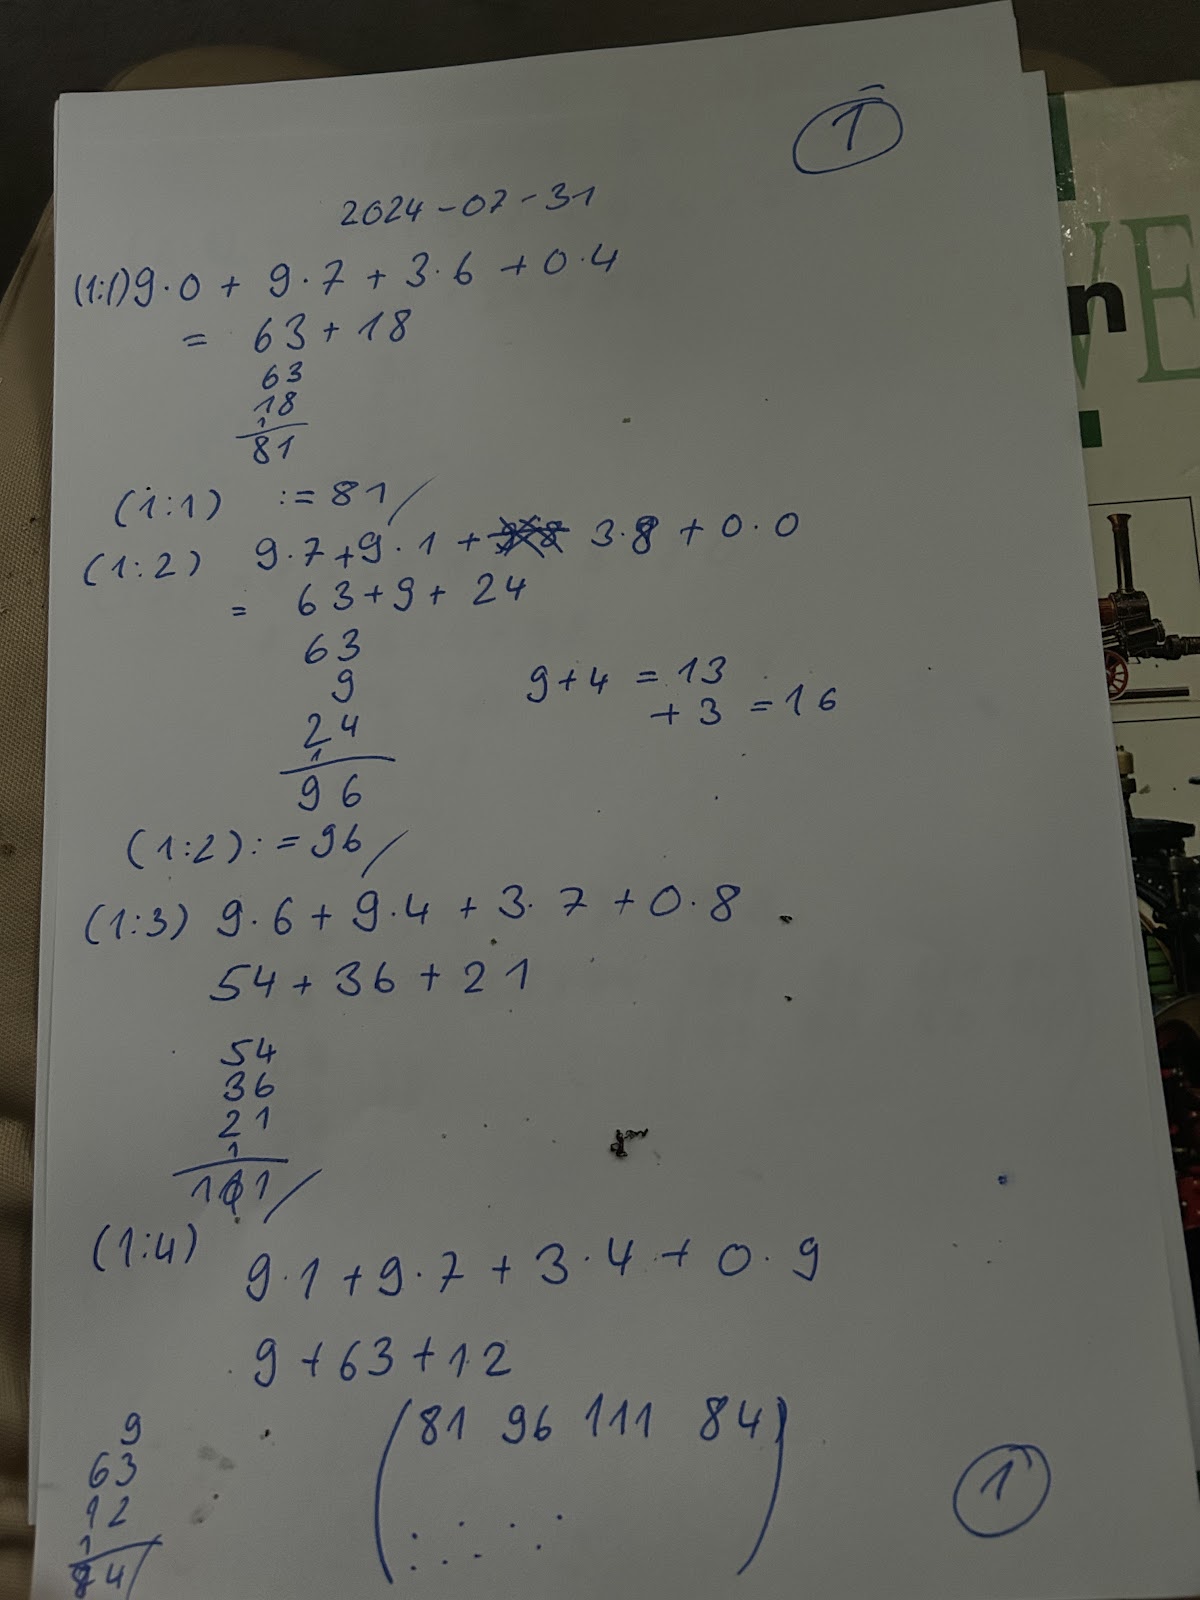 1
2024-07-31
(1:1) 9·0 + 9·7 + 3·6 + 0·4
= 63 + 18
63
18
1
81
(1:1) := 81
(1:2) 9·7 + 9·1 + 3·8 + 0·0
= 63 + 9 + 24
63
9
24
1
96
9 + 4 = 13
+ 3 = 16
(1:2) := 96
(1:3) 9·6 + 9·4 + 3·7 + 0·8
54 + 36 + 21
54
36
21
1
111
(1:4) 9·1 + 9·7 + 3·4 + 0·9
9 + 63 + 12
9
63
12
1
84
(81 96 111 84)
1
n
VE